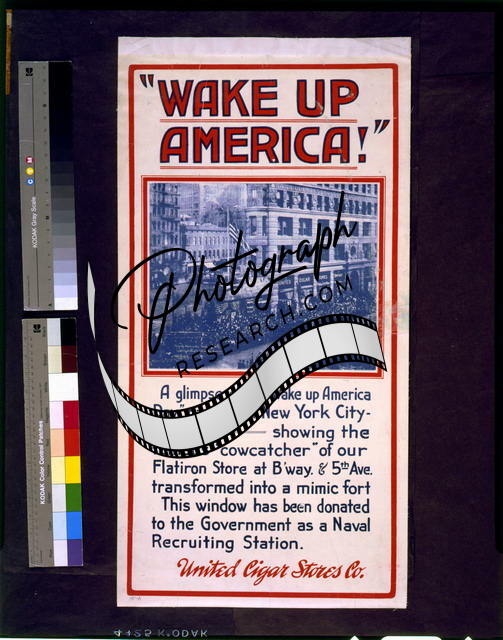 "WAKE UP
AMERICA!"
Photograph
RESEARCH.COM
A glimpse ake up America
New York City-
showing the
cowcatcher" of our
Flatiron Store at B'way. & 5th Ave.
transformed into a mimic fort
This window has been donated
to the Government as a Naval
Recruiting Station.
United Cigar Stores Co.
KODAK Gray Scale
C Y M
KODAK Color Control Patches
4125 KODAK